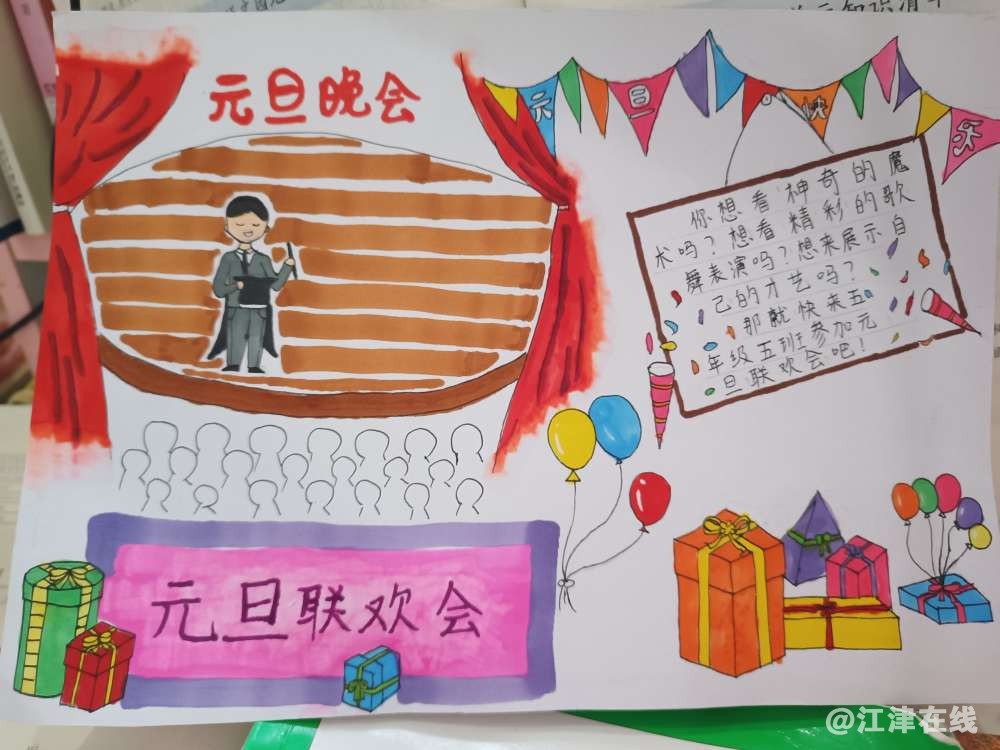 元旦晚会
元旦快乐
你想看神奇的魔
术吗？想看精彩的歌
舞表演吗？想来展示自
己的才艺吗？
那就快来五
年级五班参加元
旦联欢会吧！
元旦联欢会
@江津在线